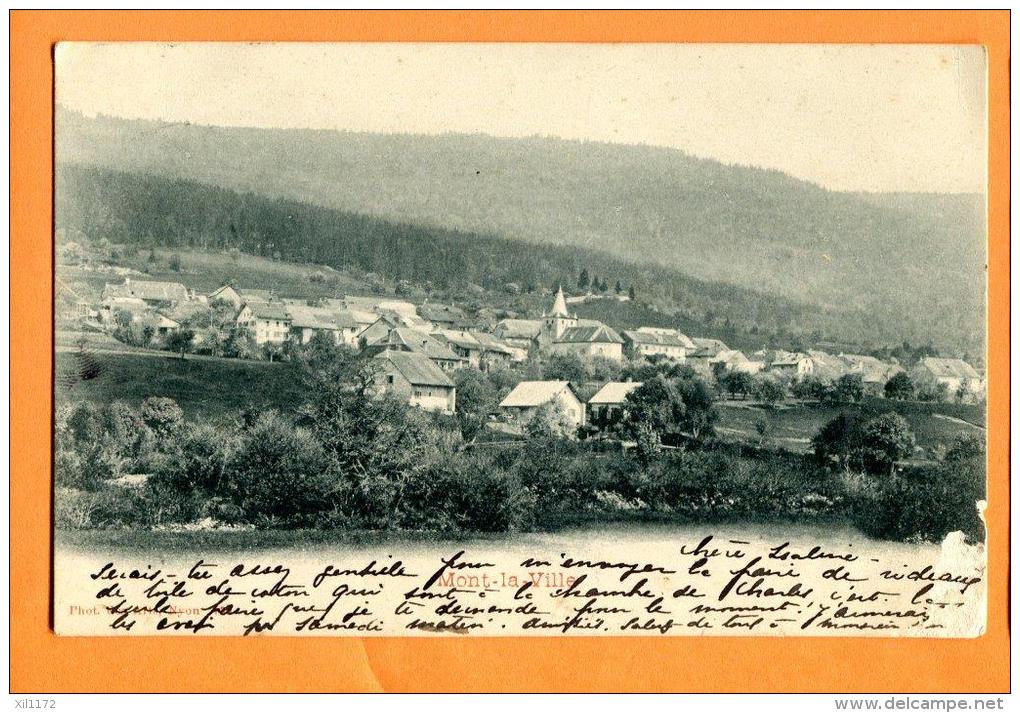 Chère Isaline,
Serais-tu assez gentille pour m'envoyer la paire de rideaux
de toile de coton qui sont à la chambre de Charles, c'est la
seule paire que je te demande pour le moment; j'aimerais
les avoir par samedi matin. Amitiés. Saluts de tous à
Mont-la-Ville
Phot. Nyon
xil1172
www.delcampe.net